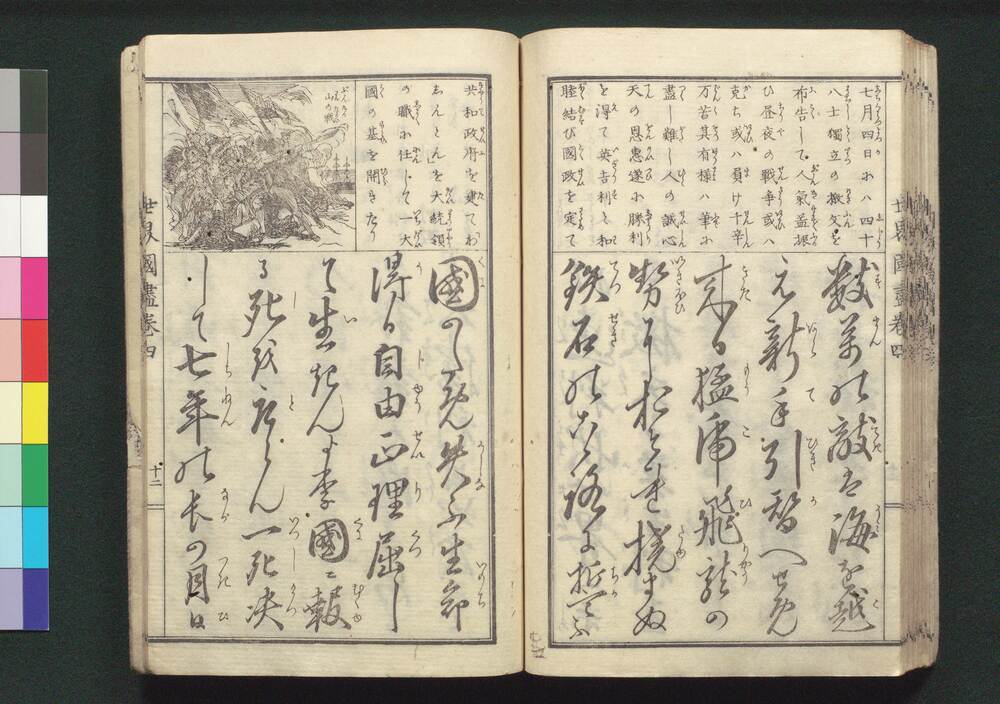 世界國盡卷四
七月四日にハ四十
八士獨立の檄文を
布告して人氣益振
ひ昼夜の戦争或ハ
克ち或ハ負け千辛
万苦其有様ハ筆に
盡し難し人の誠心
天の恩惠遂に勝利
を得て英吉利と和
睦結び國政を定て
數萬の敵は海を越
え新手引替へせめ
来る猛虎飛龍の
勢におそれ撓まぬ
鉄石のこゝろに誓ふ
共和政府を建てわ
しんとんを大統領
の職に任じて一大
國の基を開きたり
ぶんける
山の戦
國のため失ふ生命
得る自由正理屈し
て生きんより國に報
る死を取らん一死决
して七年の長の月日
世界國盡卷四
十二